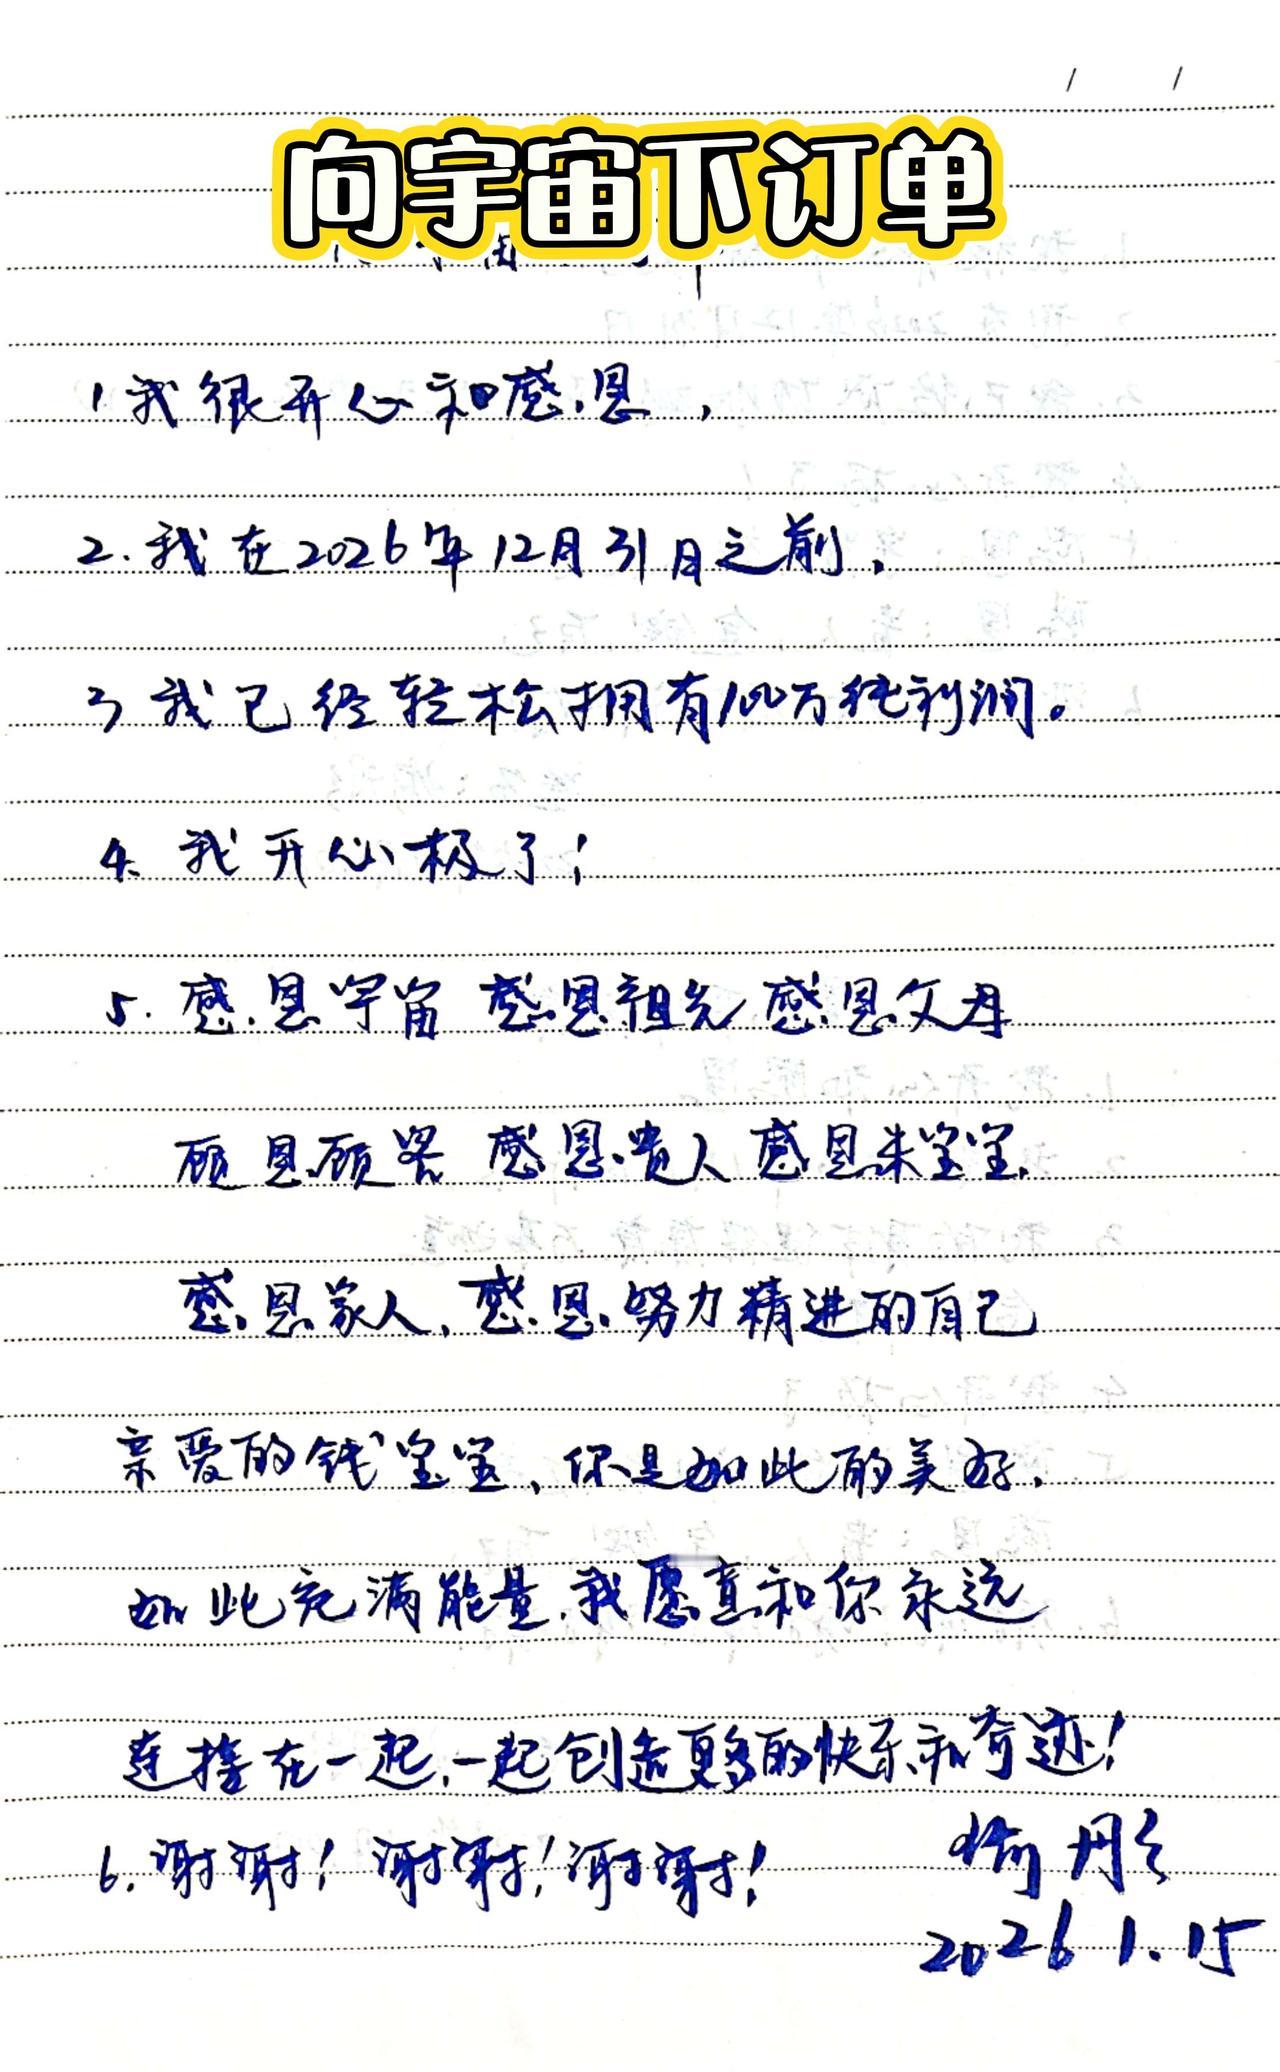 向宇宙下订单
1 我很开心和感恩,
2. 我在2026年12月31日之前,
3 我已经轻松拥有100万纯利润。
4. 我开心极了!
5. 感恩宇宙 感恩祖先 感恩父母
顾恩顾客 感恩贵人 感恩朱宝宝,
感恩家人,感恩努力精进的自己
亲爱的钱宝宝,你是如此的美好,
如此充满能量,我愿意和你永远
连接在一起,一起创造更多的快乐和奇迹!
6. 谢谢!谢谢!谢谢!
2026 1.15